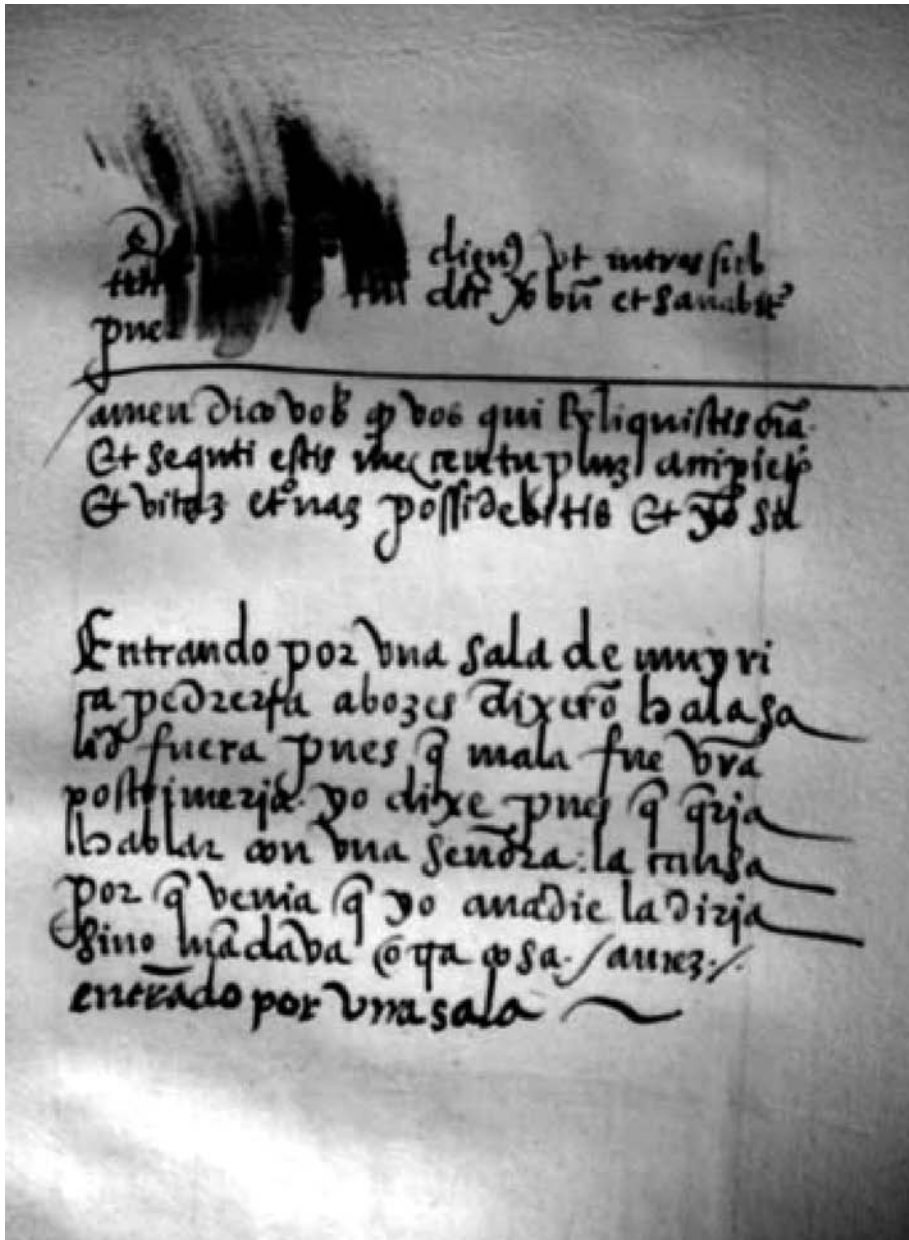 dign9 vt intres sub
tuũ dic̃ xo bũ et sanabit^r
puer
amen dico vob̃ qp vos qui Reliquistis oĩa.
Et sequti estis me centuplũ accipietis
Et vitaz et^r naz possidebitis Et
Entrando por vna sala de muy ri
ca pedreria abozes dixerõ hala sa
lid fuera pues q̃ mala fue vr̃a
postrimeria. yo dixe pues q̃ q̃ria
hablar con vna señora: la causa
por q̃ venia q̃ yo anadie la diria
sino mãdava cosa.
entrãdo por vna sala